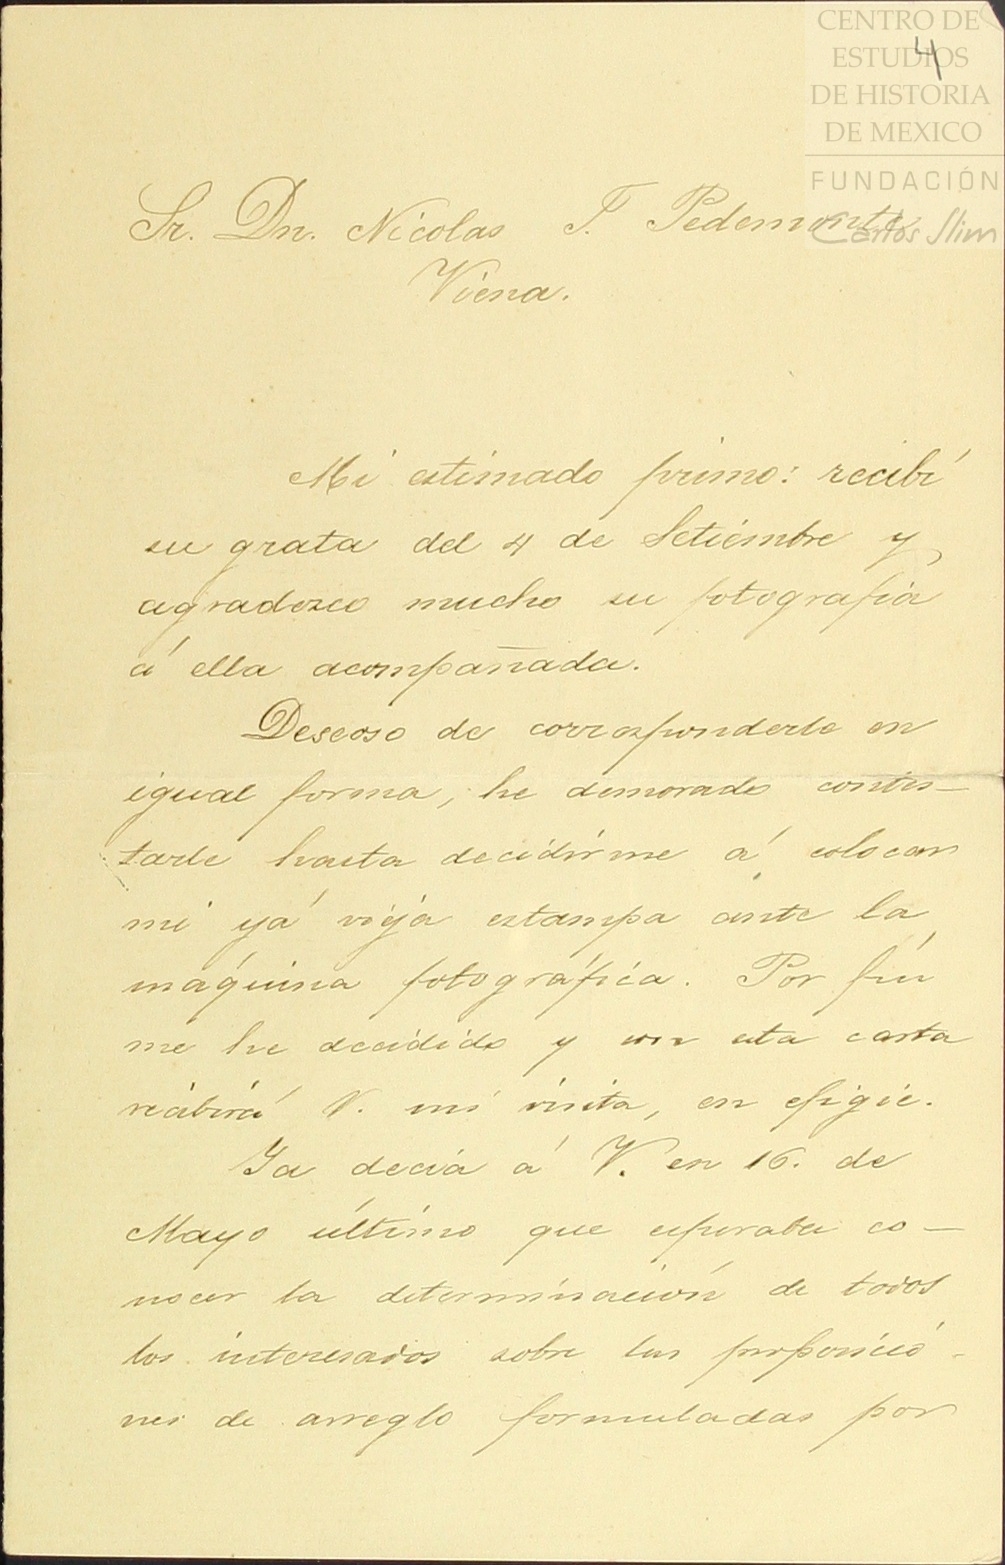 CENTRO DE
ESTUDIOS
DE HISTORIA
DE MEXICO
FUNDACIÓN
Carlos Slim
4
Sr. Dn. Nicolas F. Pedemonte
Viena.
Mi estimado primo: recibí
su grata del 4 de Setiembre y
agradozco mucho su fotografia
á ella acompañada.
Deseoso de corresponderle en
igual forma, he demorado contes-
tarle hasta decidirme á colocar
mi yá vieja estampa ante la
máquina fotográfica. Por fin
me he decidido y con esta carta
recibirá V. mi visita, en efigie.
Ya decia á V. en 16. de
Mayo último que esperaba co-
nocer la determinación de todos
los interesados sobre las proposicio-
nes de arreglo formuladas por